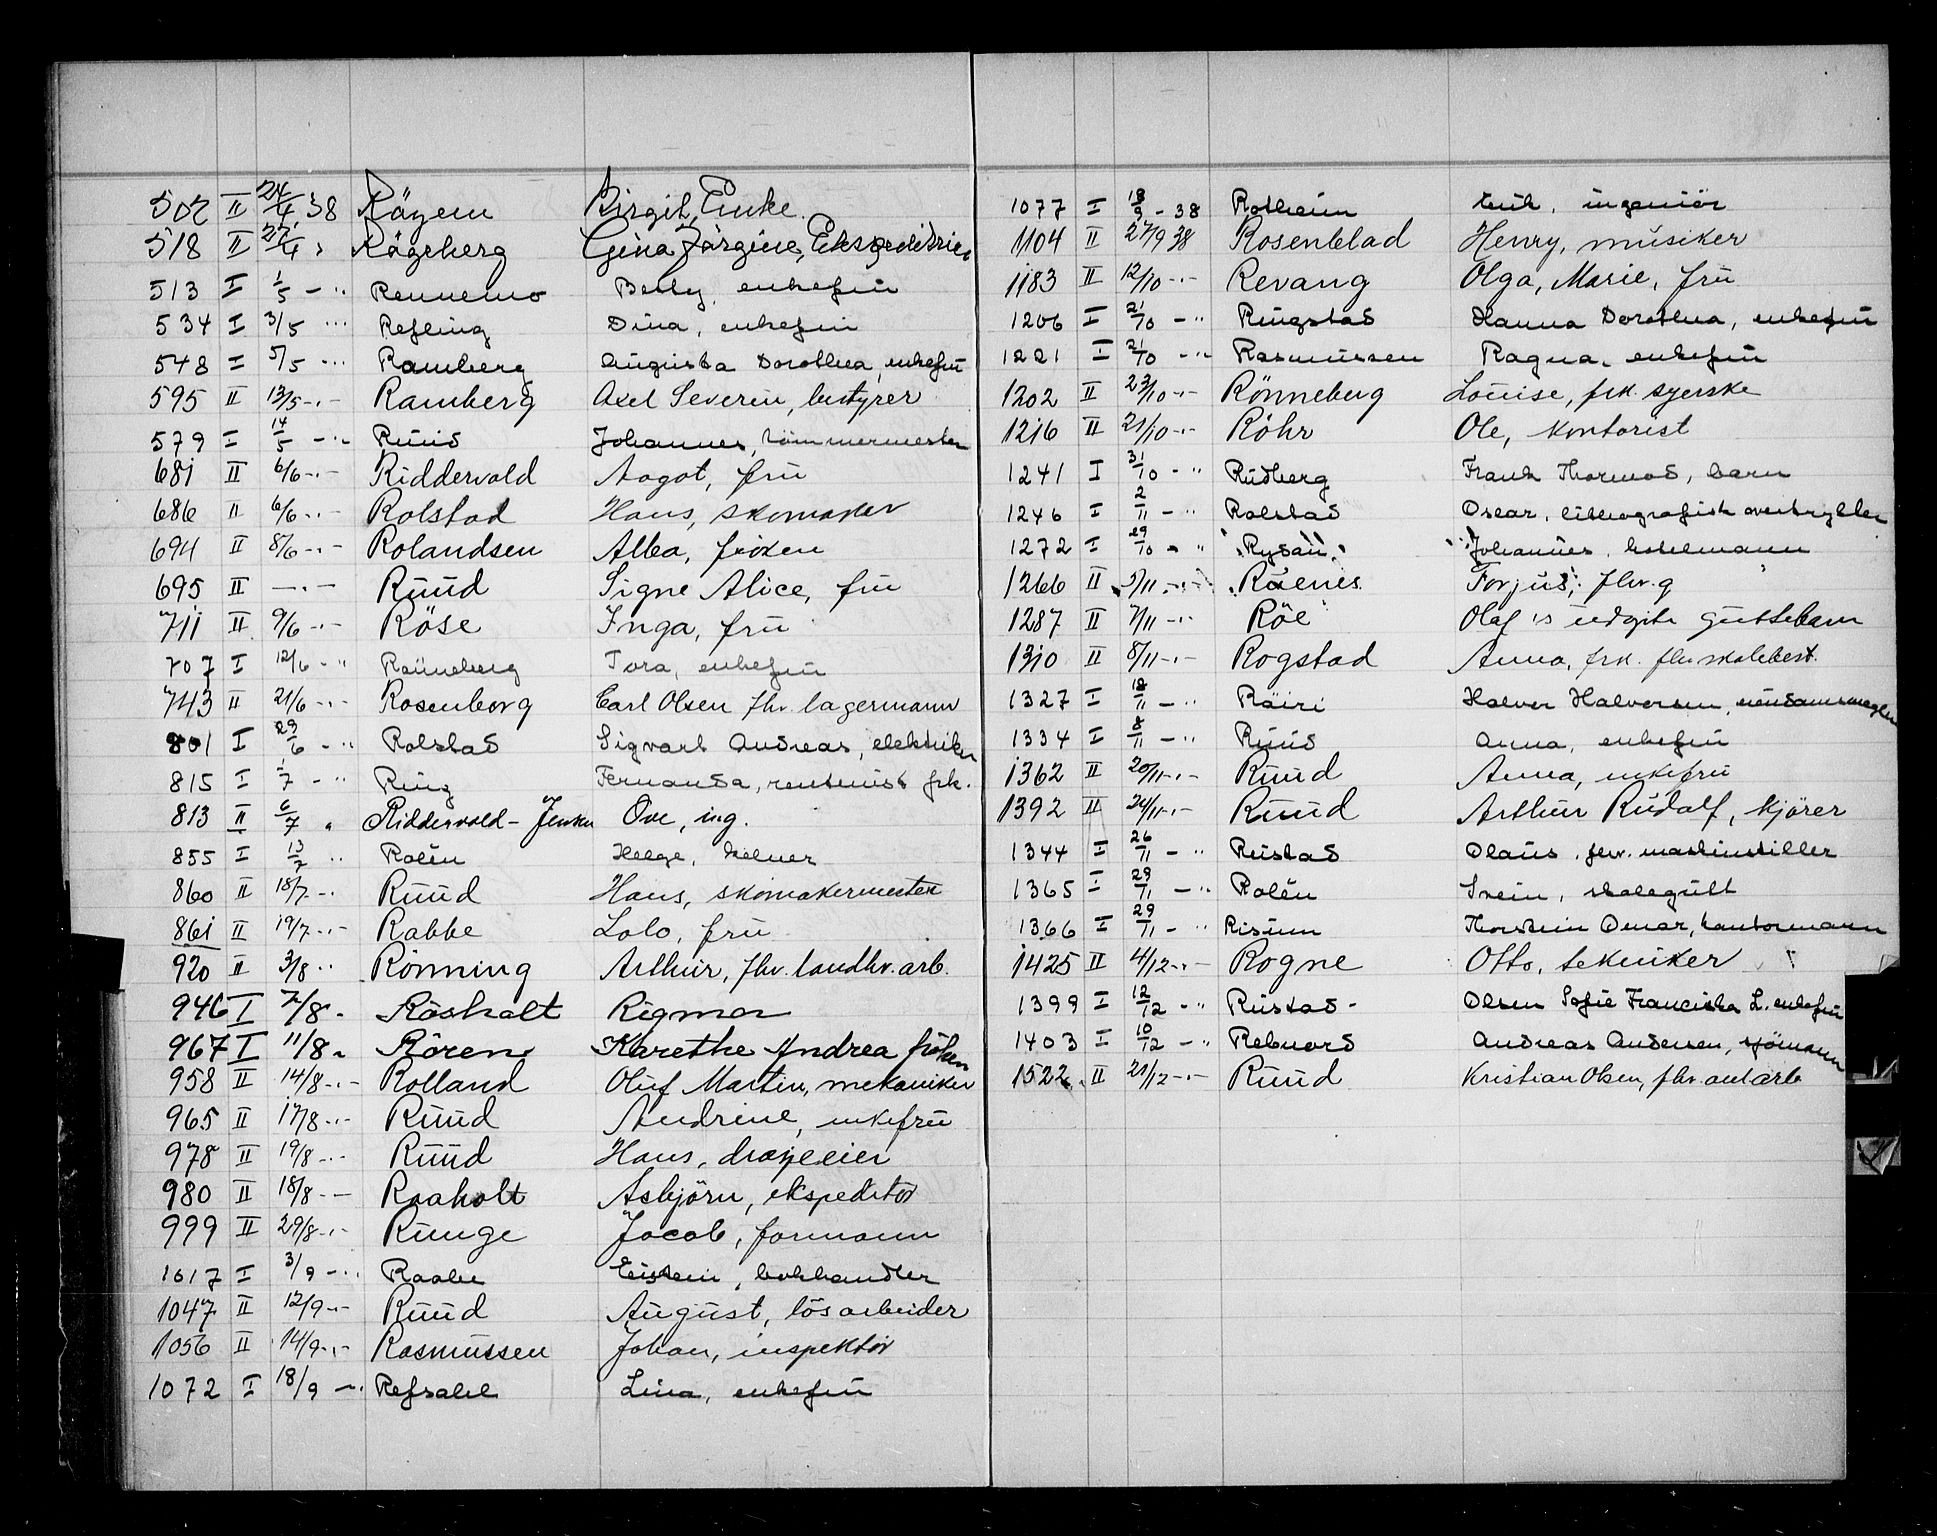 502 II 24/4 38 Rågem Birgit, Enke.
518 II 27/4 " Rågeberg Gina Jörgine, Ekspeditrise
513 I 1/5 - " Rennemo Betly, enkefrü
534 I 3/5 " Refling Dina, enkefrü
548 I 5/5 " Ramberg Aügüsta Dorothea, enkefrü
595 II 13/5 -"- Ramberg Axel Severin, bestyrer
579 I 14/5 -"- Rüüd Johannes, tömmermester
681 II 6/6 -"- Riddervold Aagot, frü
686 II 6/6 -"- Rolstad Hans, skomaker
694 II 8/6 -"- Rolandsen Alba, fröken
695 II -"- Rüüd Signe Alice, frü
711 II 9/6 -"- Röse Inga, frü
707 I 12/6 - " Rønneberg Tora, enkefrü
743 II 21/6 -"- Rosenborg Carl Olsen fhv. lagermann
801 I 29/6 - " Rolstad Sigvart Andreas, elektriker
815 I 1/7 - " Ring Fernanda, rentenist frk.
813 II 6/7 " Riddervold-Jensen Ove, ing.
855 I 13/7 " Rolén Helge, kelner
860 II 18/7 -"- Rüüd Hans, skomakermester
861 II 19/7 -"- Rabbe Lolo, frü
920 II 3/8 " Rönning Arthür, fhv. landbr. arb.
946 I 7/8 - Råsholt Rigmor
967 I 11/8 " Rören Karethe Andrea fröken
958 II 14/8 -"- Rolland Olüf Martin, mekaniker
965 II 17/8 -"- Rüüd Andrine, enkefrü
978 II 19/8 -"- Rüüd Hans, drosjeeier
980 II 18/8 -"- Raaholt Asbjörn, ekspeditör
999 II 29/8 -"- Rünge Jacob, formann
1017 I 3/9 -" Raabe Eistein, bokhandler
1047 II 12/9 -"- Rüüd Aügüst, lösarbeider
1056 II 14/9 -"- Rasmüssen Johan, inspektör
1072 I 18/9 -" Refsahl Lina, enkefrü
1077 I 18/9 - 38 Rotheim Erik, ingeniör
1104 II 27/9 38 Rosenblad Henry, müsiker
1183 II 12/10 -"- Revang Olga, Marie, frü
1206 I 21/10 - " Ringstad Hanna Dorothea, enkefrü
1221 I 21/10 - " Rasmüssen Ragna, enkefrü
1202 II 23/10 -"- Rönneberg Loüise, frk. syerske
1216 II 21/10 -"- Röhr Ole, kontorist
1241 I 31/10 - " Rüdberg Frank Thormod, barn
1246 I 2/11 - " Rolstad Oscar, lithografisk overtrykker
1272 I 29/10 - " Rysaü Johannes, hotelmann
1266 II 5/11 -"- Råenes Torjüs, fhv. g
1287 II 7/11 -"- Röe Olaf 's üdøpte Güttebarn
1310 II 8/11 -"- Rogstad Anna, frk. fhv skolebest.
1327 I 18/11 - " Räiri Halvor Halvorsen, eiendomsmegler
1334 I 8/11 - " Rüüd Anna, enkefrü
1362 II 20/11 -"- Rüüd Anna, enkefrü
1392 II 24/11 -"- Rüüd Arthür Rüdolf, kjörer
1344 I 26/11 - " Rüstad Olaüs, fhv. maskinstiller
1365 I 29/11 - " Rolén Svein, skolegütt
1366 I 29/11 - " Risünn Thorstein Omar, kontormann
1425 II 4/12 -"- Rogne Otto, tekniker
1399 I 12/12 - " Rüstad - Olsen Sofie Franciska L. enkefrü
1403 I 10/12 - " Rebnord Andreas Andersen, sjömann
1522 II 21/12 -"- Rüüd Kristian Olsen, fhv. anl. arb